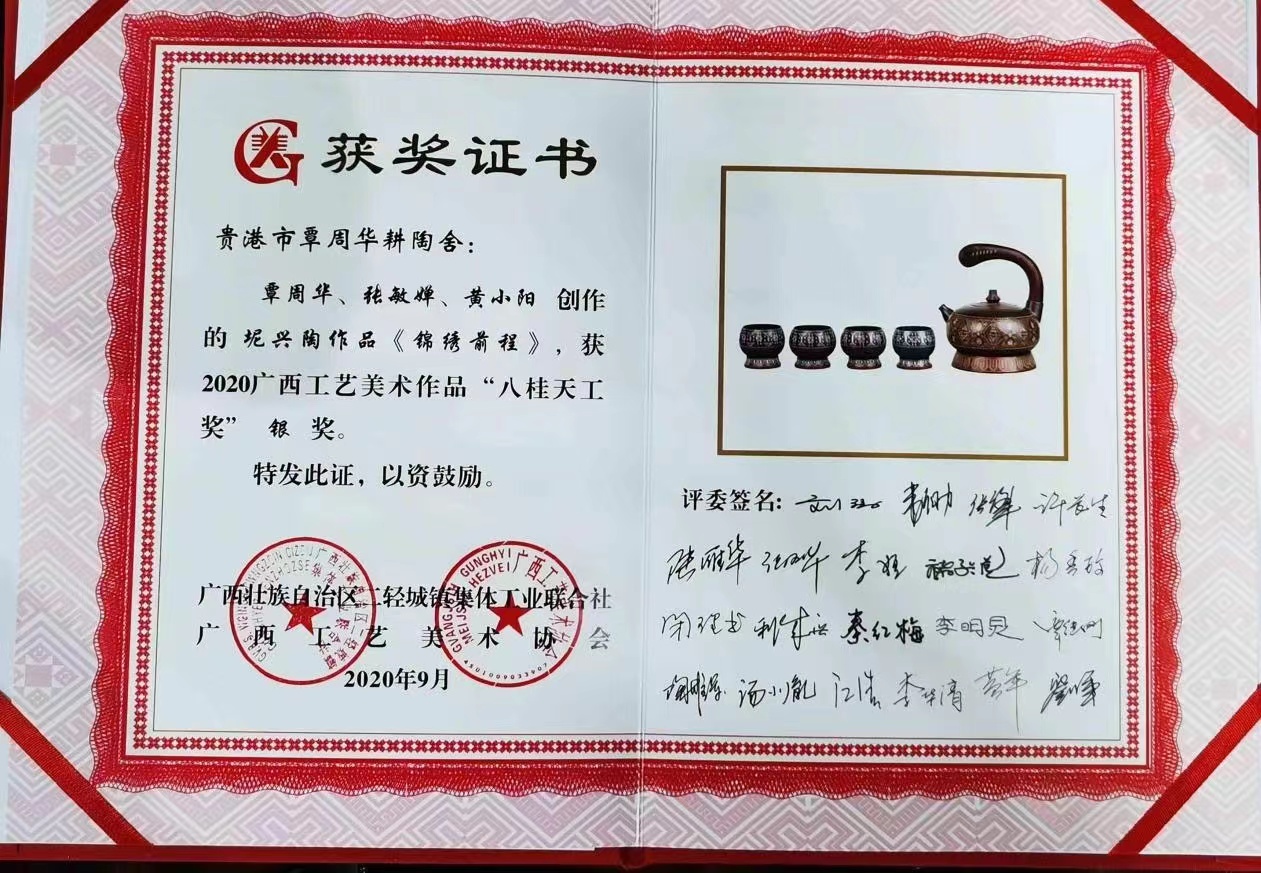 获奖证书
贵港市覃周华耕陶舍：
覃周华、张敏婵、黄小阳 创作
的 坭兴陶作品《锦绣前程》，获
2020广西工艺美术作品“八桂天工
奖” 银 奖。
特发此证，以资鼓励。
广西壮族自治区二轻城镇集体工业联合社
广西工艺美术协会
2020年9月
GUANGJSIH GUNGHYI
MEIJSUZ HEZVEI
广西工艺美术协会
4501009033907
评委签名：
张辉 许长生
陆雁华 李
秦红梅 李明
汤小胤 江浩 李华清 黄军